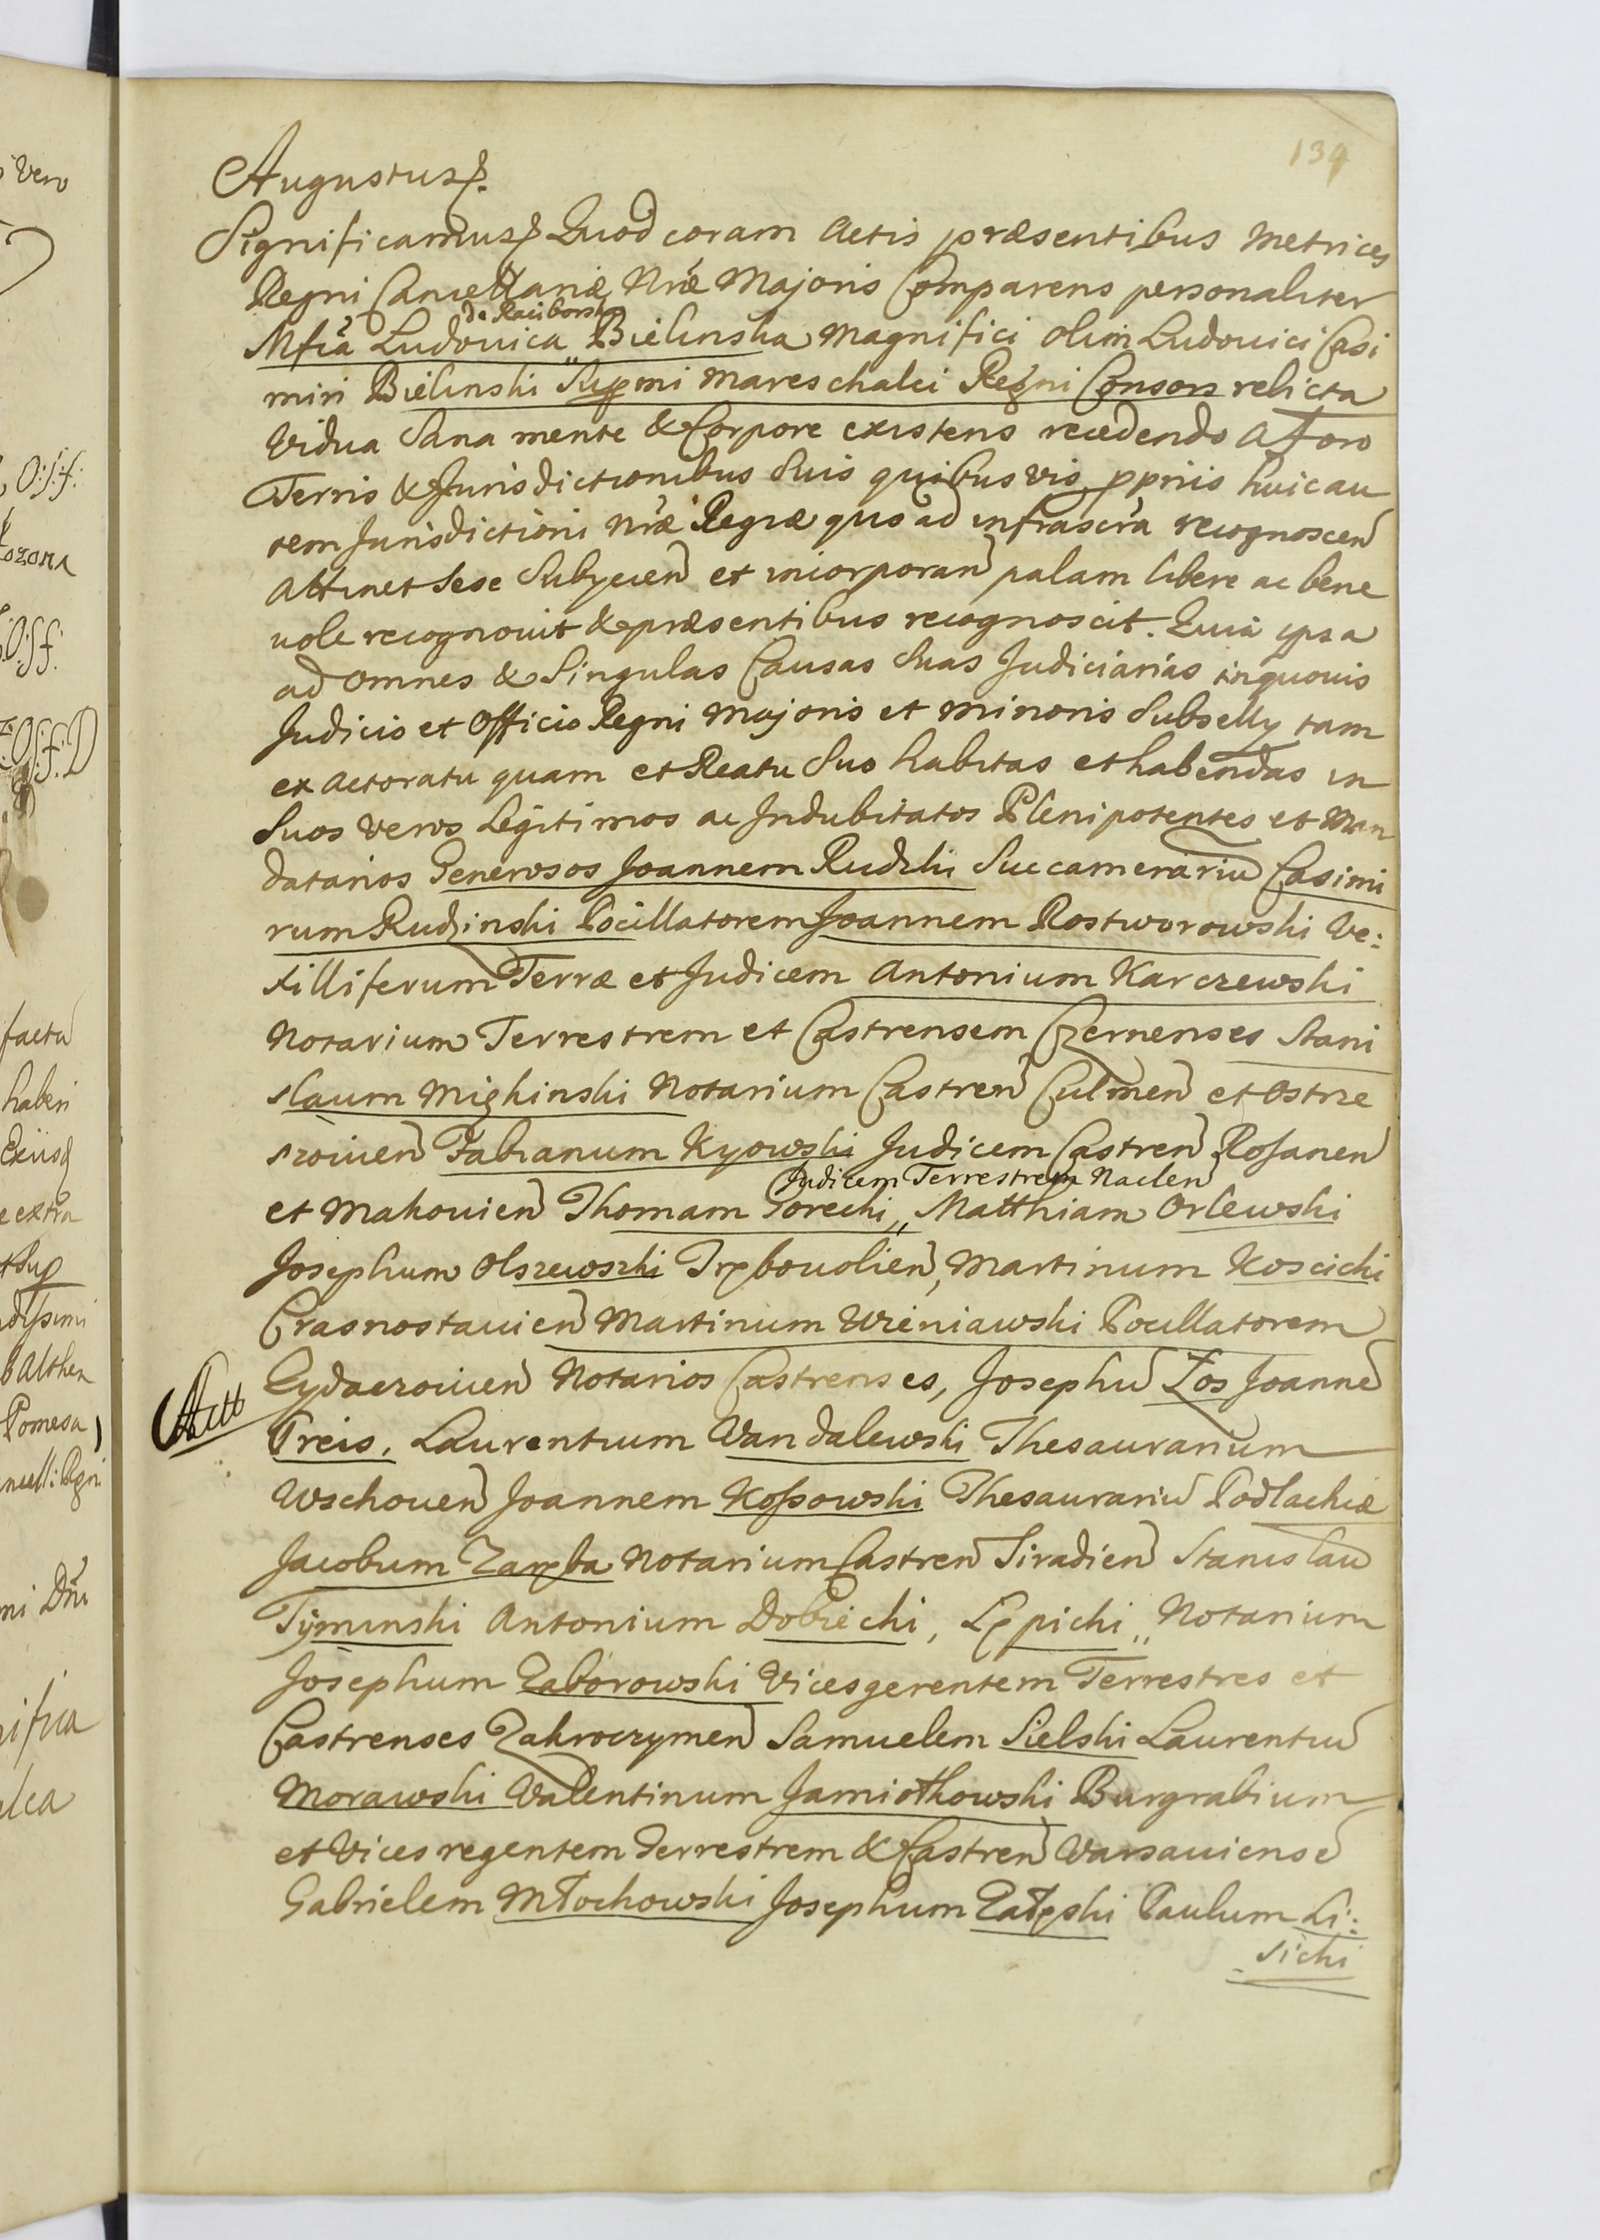 139
Augustus &.
Significamus & Quod coram Actis præsentibus Metrices
Regni Cancellariæ Nræ Majoris Comparens personaliter
de Raciborsko
Mfica Ludovica Bielinska Magnifici olim Ludovici Casi
miri Bielinski Supmi Mareschalci Regni Consors relicta
Vidua Sana mente & Corpore existens recedendo A Foro
Terris & Jurisdictionibus Suis quibusvis ppriis huic au
tem Jurisdictioni Nræ Regiæ quo ad infrascra recognoscen
Attinet Sese Subyicien et incorporan palam libere ac bene
uole recognouit & præsentibus recognoscit. Quia ipsa
ad omnes & Singulas Causas Suas Judiciarias in quouis
Judicio et Officio Regni Majoris et Minoris Subselly tam
ex Actoratu quam et Reatu Suo habitas et habendas in
Suos Veros Legitimos ac Indubitatos Plenipotentes et Man
datarios Generosos Joannem Rudzki Succamerariu Casimi
rum Rudzinski Pocillatorem Joannem Rostworowski Ve:
xilliferum Terræ et Judicem Antonium Karczewski
Notarium Terrestrem et Castrensem Czernenses Stani
slaum Mighinski Notarium Castren Culmen et Ostrze
szouien Fabianum Kyowski Judicem Castren Rosanen
Judicem Terrestrem Naclen
et Makouien Thomam Gorecki,, Matthiam Orlewski
Josephum Olszewski Trębouolien, Martinum Koscicki
Crasnostauien Martinum Wieniawski Pocillatorem
Zydaczouien Notarios Castrenses, Josephu Łos Joanne
Preis, Laurentium Wandalewski Thesaurarium
Wschouen Joannem Kossowski Thesaurariu Podlachiæ
Jacobum Zaręba Notarium Castren Siradien Stanislau
Tyminski Antonium Dobiecki, Lępicki,, Notarium
Josephum Zaborowski Vicesgerentem Terrestres et
Castrenses Zakroczymen Samuelem Sielski Laurentiu
Morawski Valentinum Jamiołkowski Burgrabium
et Vicesregentem Terrestrem & Castren Varsauiense
Gabrielem Młochowski Josephum Załęski Paulum Li:
sicki